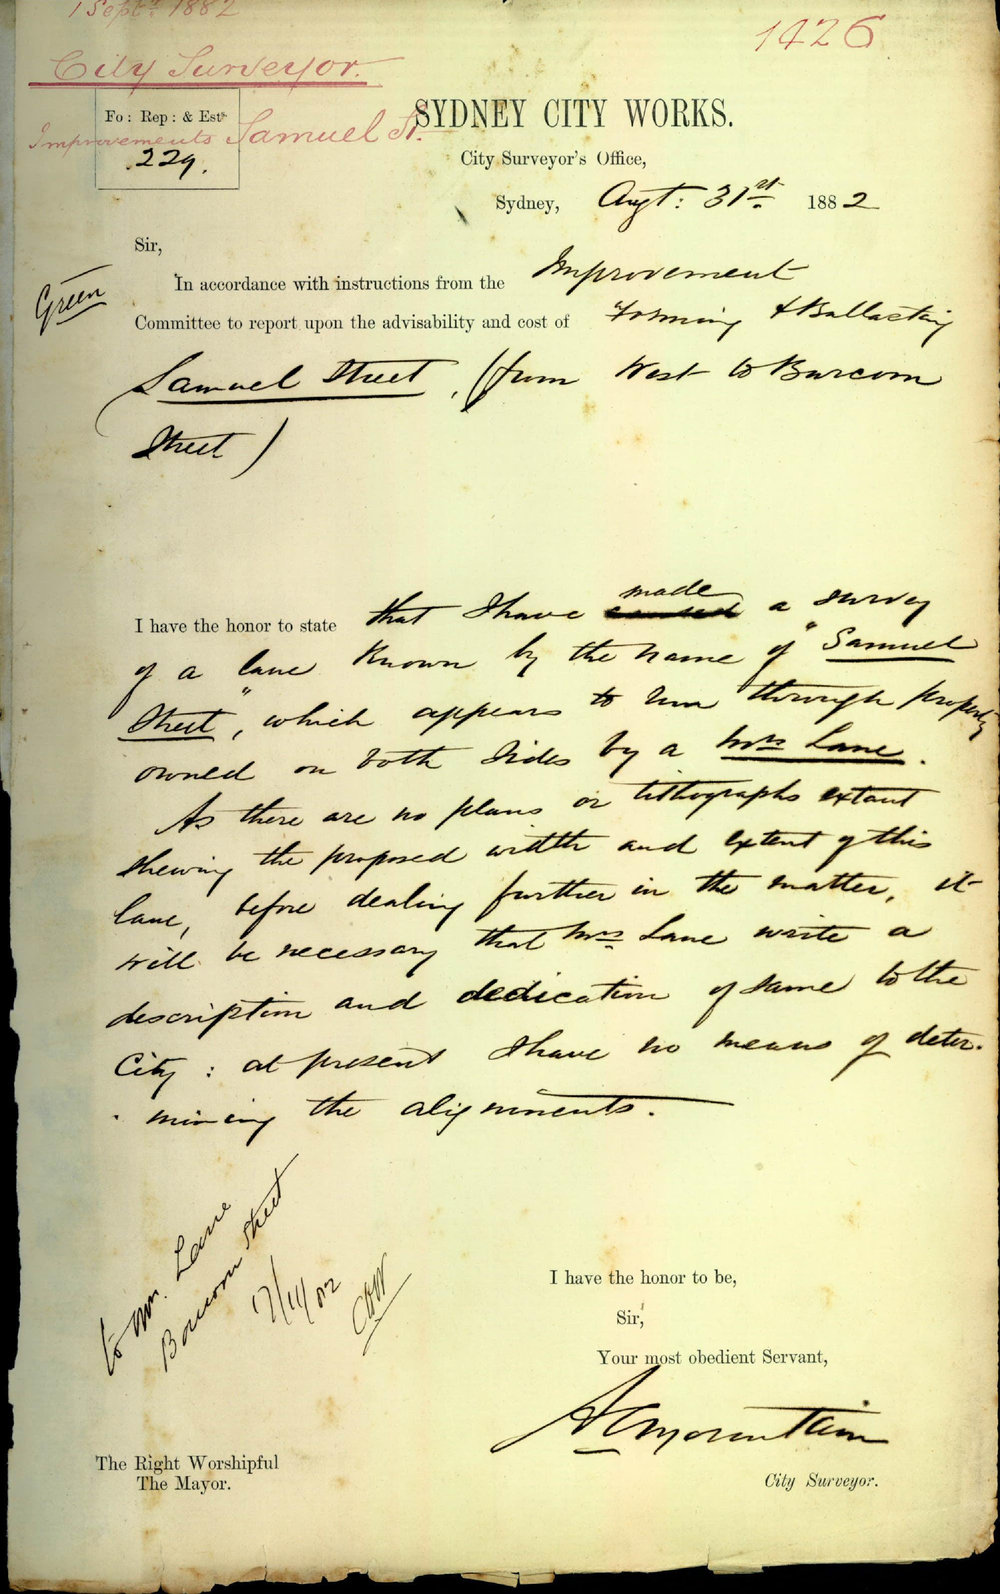 1 Sept. 1882
1426
City Surveyor.
Fo: Rep: & Est.
Improvements Samuel St.
229.
SYDNEY CITY WORKS.
City Surveyor's Office,
Sydney, Augt: 31st 1882
Sir,
Green
In accordance with instructions from the Improvement
Committee to report upon the advisability and cost of "forming & Ballasting
Samuel Street, (from West to Burcom
Street)
I have the honor to state that I have made a survey
of a lane known by the name of "Samuel
Street", which appears to run through property
owned on both sides by a Mrs Lane.
As there are no plans or lithographs extant
shewing the proposed width and extent of this
lane, before dealing further in the matter, it
will be necessary that Mrs Lane write a
description and dedication of same to the
City: at present I have no means of deter-
mining the alignments.
to Mr. Lane
Street
I have the honor to be,
Sir,
Your most obedient Servant,
A C Mountain
City Surveyor.
The Right Worshipful
The Mayor.